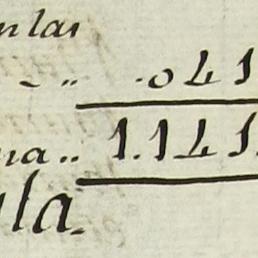 n las
- ,, .041
na.. 1.141.
la.